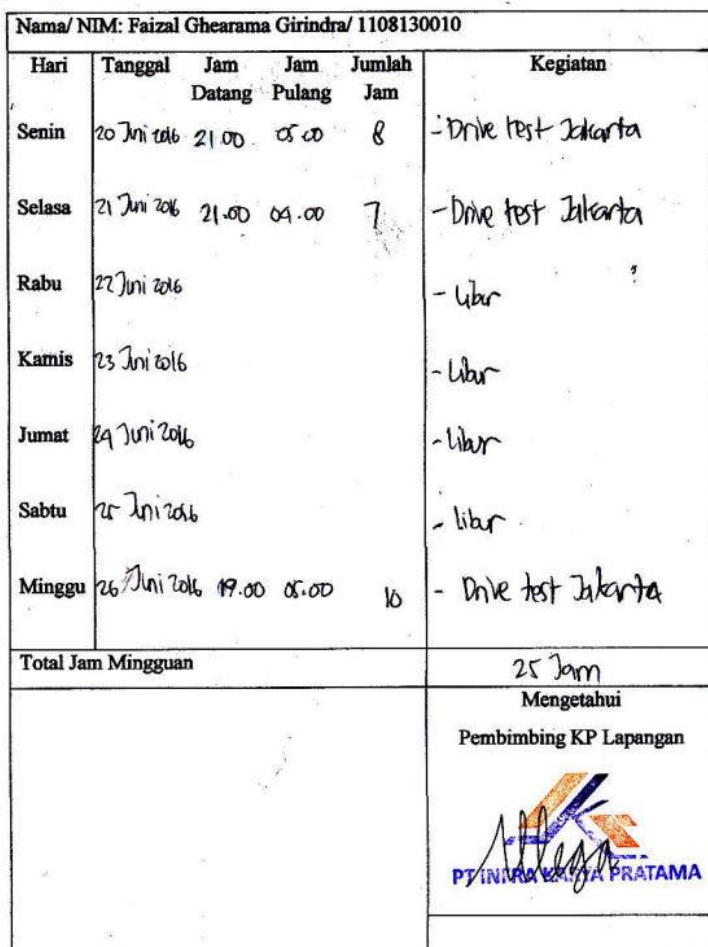 Nama/ NIM: Faizal Ghearama Girindra/ 1108130010
Hari Tanggal Jam Datang Jam Pulang Jumlah Jam Kegiatan
Senin 20 Juni 2016 21.00 05.00 8 - Drive test Jakarta
Selasa 21 Juni 2016 21.00 04.00 7 - Drive test Jakarta
Rabu 22 Juni 2016 - Libur
Kamis 23 Juni 2016 - Libur
Jumat 24 Juni 2016 - Libur
Sabtu 25 Juni 2016 - libur
Minggu 26 Juni 2016 19.00 05.00 10 - Drive test Jakarta
Total Jam Mingguan 25 Jam
Mengetahui
Pembimbing KP Lapangan
PT INFRA KARYA PRATAMA